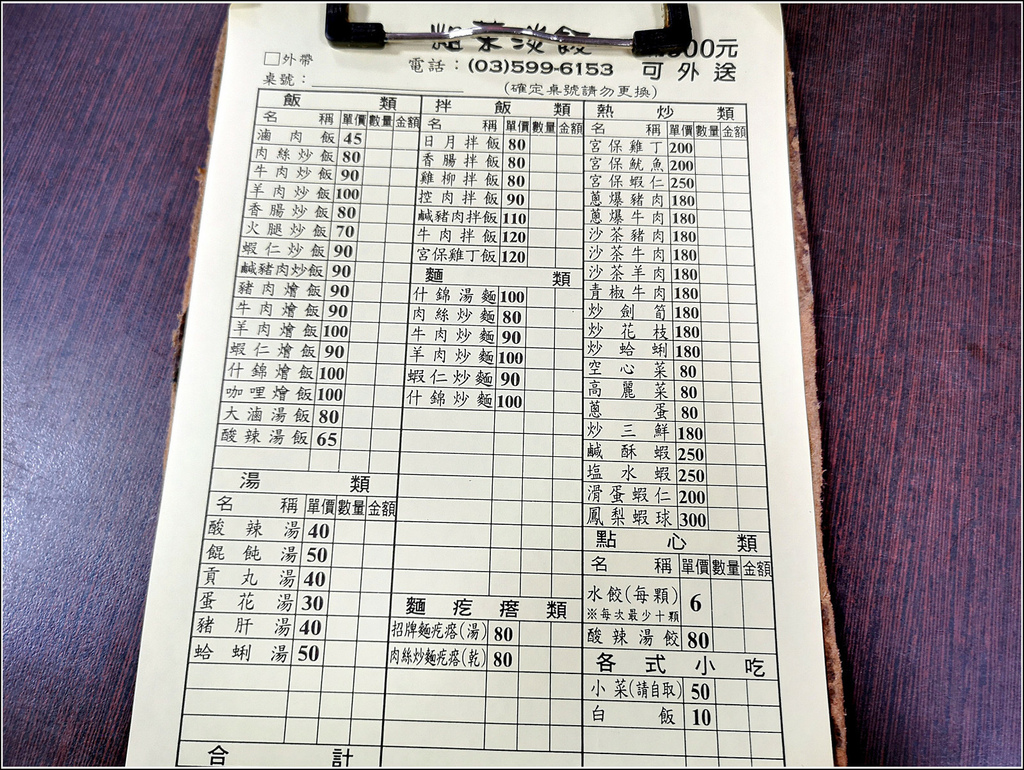 粗菜淡飯
00元
□外帶
電話：(03)599-6153
可外送
桌號：
(確定桌號請勿更換)
飯類
名稱 單價 數量 金額
滷肉飯 45
肉絲炒飯 80
牛肉炒飯 90
羊肉炒飯 100
香腸炒飯 80
火腿炒飯 70
蝦仁炒飯 90
鹹豬肉炒飯 90
豬肉燴飯 90
牛肉燴飯 90
羊肉燴飯 100
蝦仁燴飯 90
什錦燴飯 100
咖哩燴飯 100
大滷湯飯 80
酸辣湯飯 65
湯類
名稱 單價 數量 金額
酸辣湯 40
餛飩湯 50
貢丸湯 40
蛋花湯 30
豬肝湯 40
蛤蜊湯 50
合計
拌飯類
名稱 單價 數量 金額
日月拌飯 80
香腸拌飯 80
雞柳拌飯 80
控肉拌飯 90
鹹豬肉拌飯 110
牛肉拌飯 120
宮保雞丁飯 120
麵類
什錦湯麵 100
肉絲炒麵 80
牛肉炒麵 90
羊肉炒麵 100
蝦仁炒麵 90
什錦炒麵 100
麵疙瘩類
招牌麵疙瘩(湯) 80
肉絲炒麵疙瘩(乾) 80
熱炒類
名稱 單價 數量 金額
宮保雞丁 200
宮保魷魚 200
宮保蝦仁 250
蔥爆豬肉 180
蔥爆牛肉 180
沙茶豬肉 180
沙茶牛肉 180
沙茶羊肉 180
青椒牛肉 180
炒劍筍 180
炒花枝 180
炒蛤蜊 180
空心菜 80
高麗菜 80
蔥蛋 80
炒三鮮 180
鹹酥蝦 250
塩水蝦 250
滑蛋蝦仁 200
鳳梨蝦球 300
點心類
名稱 單價 數量 金額
水餃(每顆) 6
※每次最少十顆
酸辣湯餃 80
各式小吃
小菜(請自取) 50
白飯 10